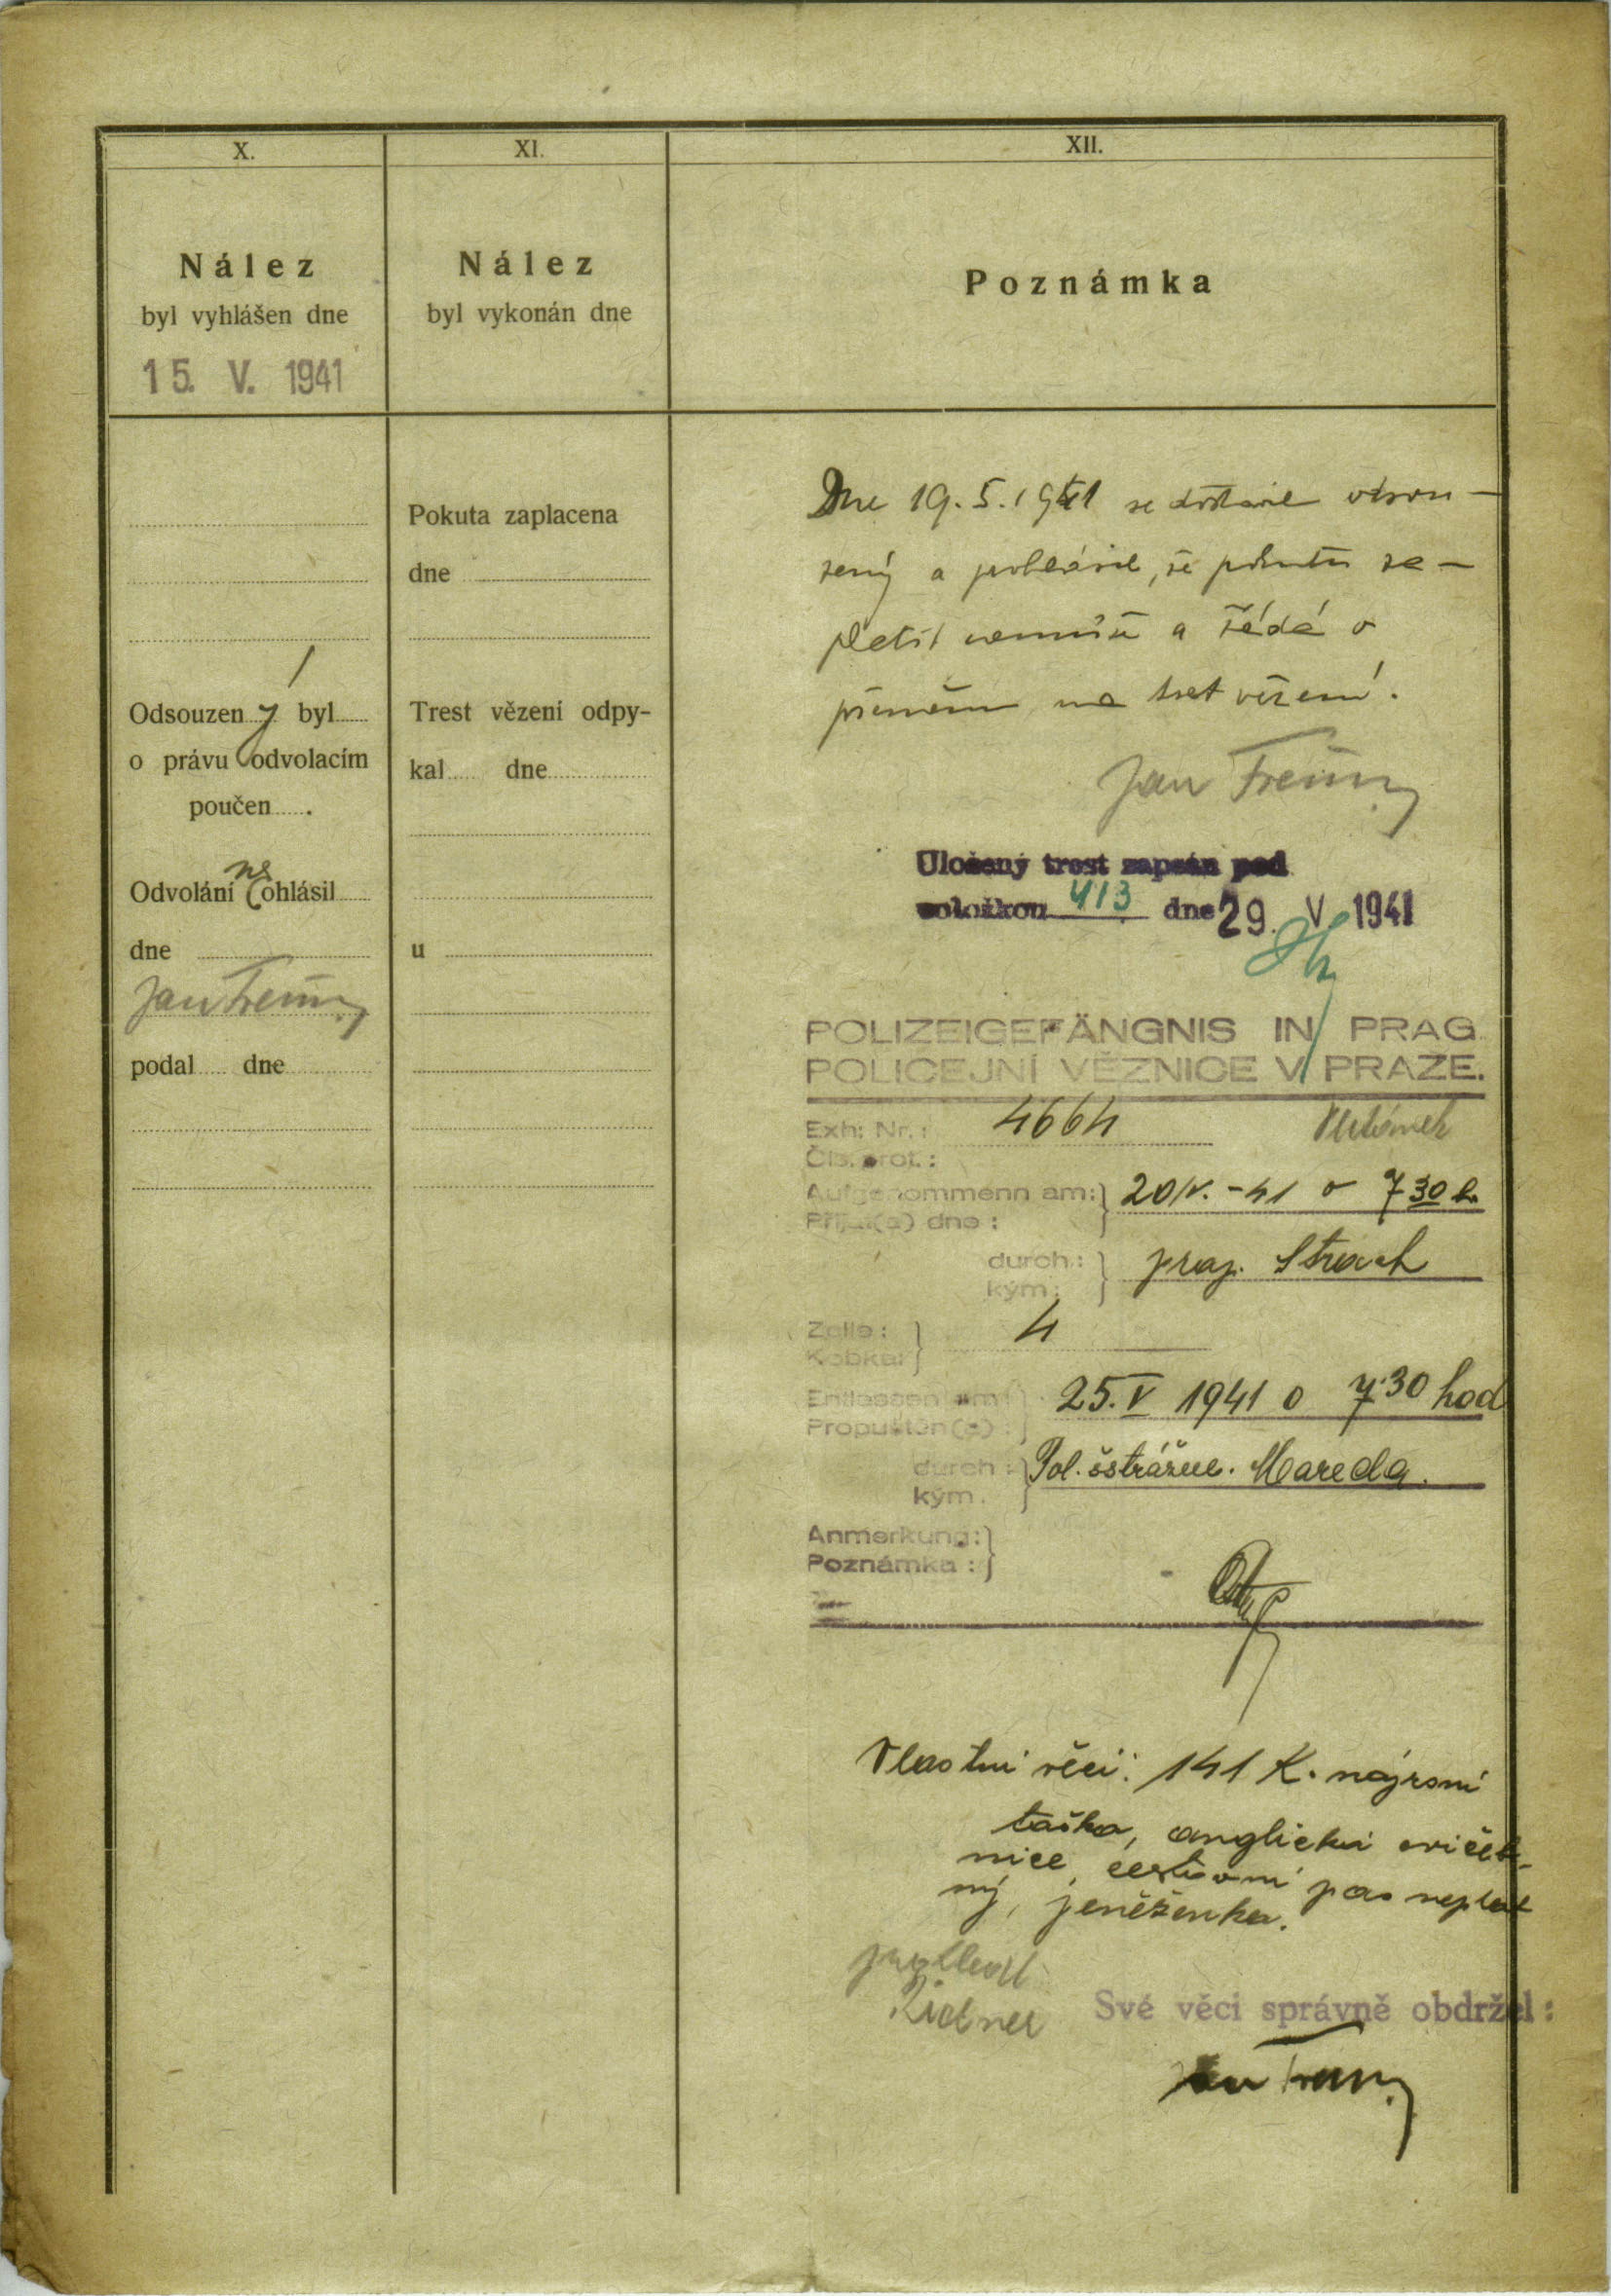 X.
Nález
byl vyhlášen dne
15. V. 1941
Odsouzený byl
o právu odvolacím
poučen .
Odvolání neohlásil
dne
Jan
podal dne
XI.
Nález
byl vykonán dne
Pokuta zaplacena
dne
Trest vězení odpy-
kal dne
u
XII.
Poznámka
Dne 19. 5. 1941 se dostavil odsou-
zený a prohlásil, že pokutu za-
platit nemůže a žádá o
přeměnu na trest vězení.
Jan
Uložený trest zapsán pod
položkou 413 dne 29. V. 1941
POLIZEIGEFÄNGNIS IN PRAG
POLICEJNÍ VĚZNICE V PRAZE.
Exh: Nr.: 4664
Čís. prot.:
Aufgenommenn am: 20/V. -41 o 7 30 h.
Přijat(a) dne:
durch: prap. Strach
kým:
Zelle: 4
Kobka:
Entlassen am: 25. V 1941 o 7.30 hod
Propuštěn(a):
durch: Pol. Mareda.
kým.
Anmerkung:
Poznámka:
Vlastní věci: 141 K. náprsní
taška, anglická cvičeb-
nice, cestovní pas neplat
ný, peněženka.
Své věci správně obdržel:
Jan